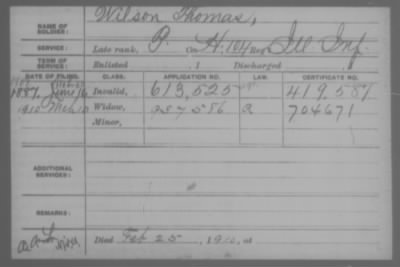 NAME OF SOLDIER: Wilson Thomas,
SERVICE: Late rank, P. Co H, 104 Reg Ill Inf.
TERM OF SERVICE: Enlisted , 1 Discharged
DATE OF FILING. CLASS. APPLICATION NO. LAW. CERTIFICATE NO.
1887, June 16 Invalid, 613,525 419,587
1910 Mch 10 Widow, 937586 704671
Minor,
ADDITIONAL SERVICES:
REMARKS:
Died Feb 25, 1910, at